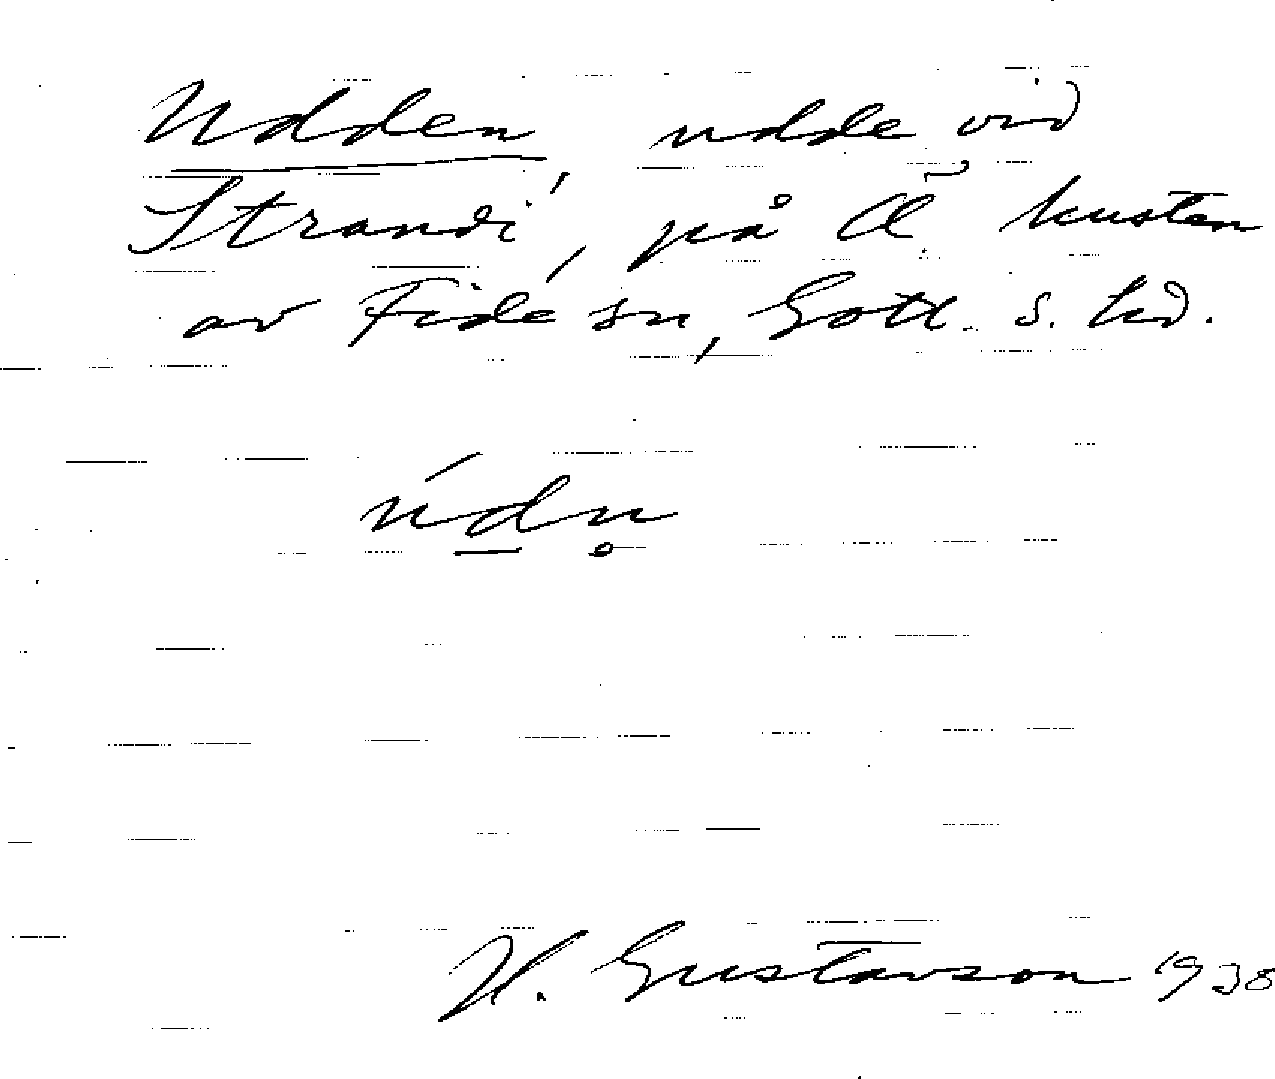 Udden, udde vid
Strandi, på Ö. kusten
av Fide sn, Gotl. s. hd.
údn̥
H. Gustavson 1938